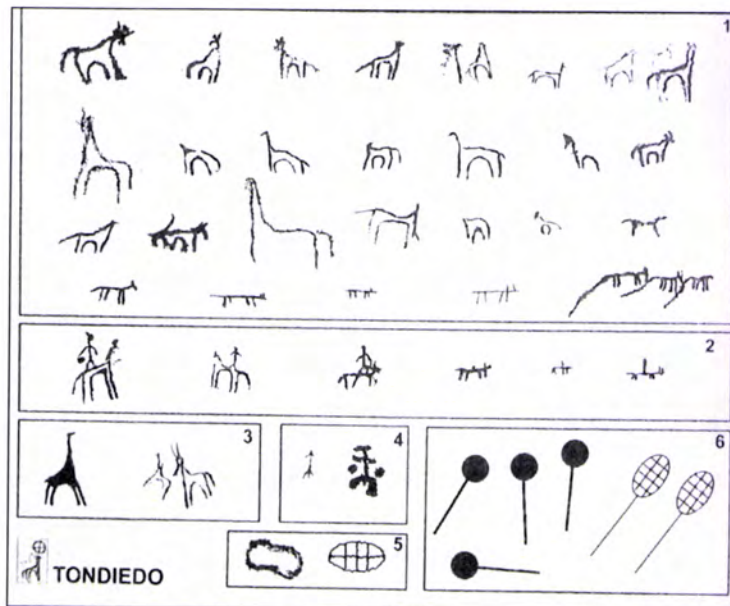 1
2
3
4
6
5
TONDIEDO